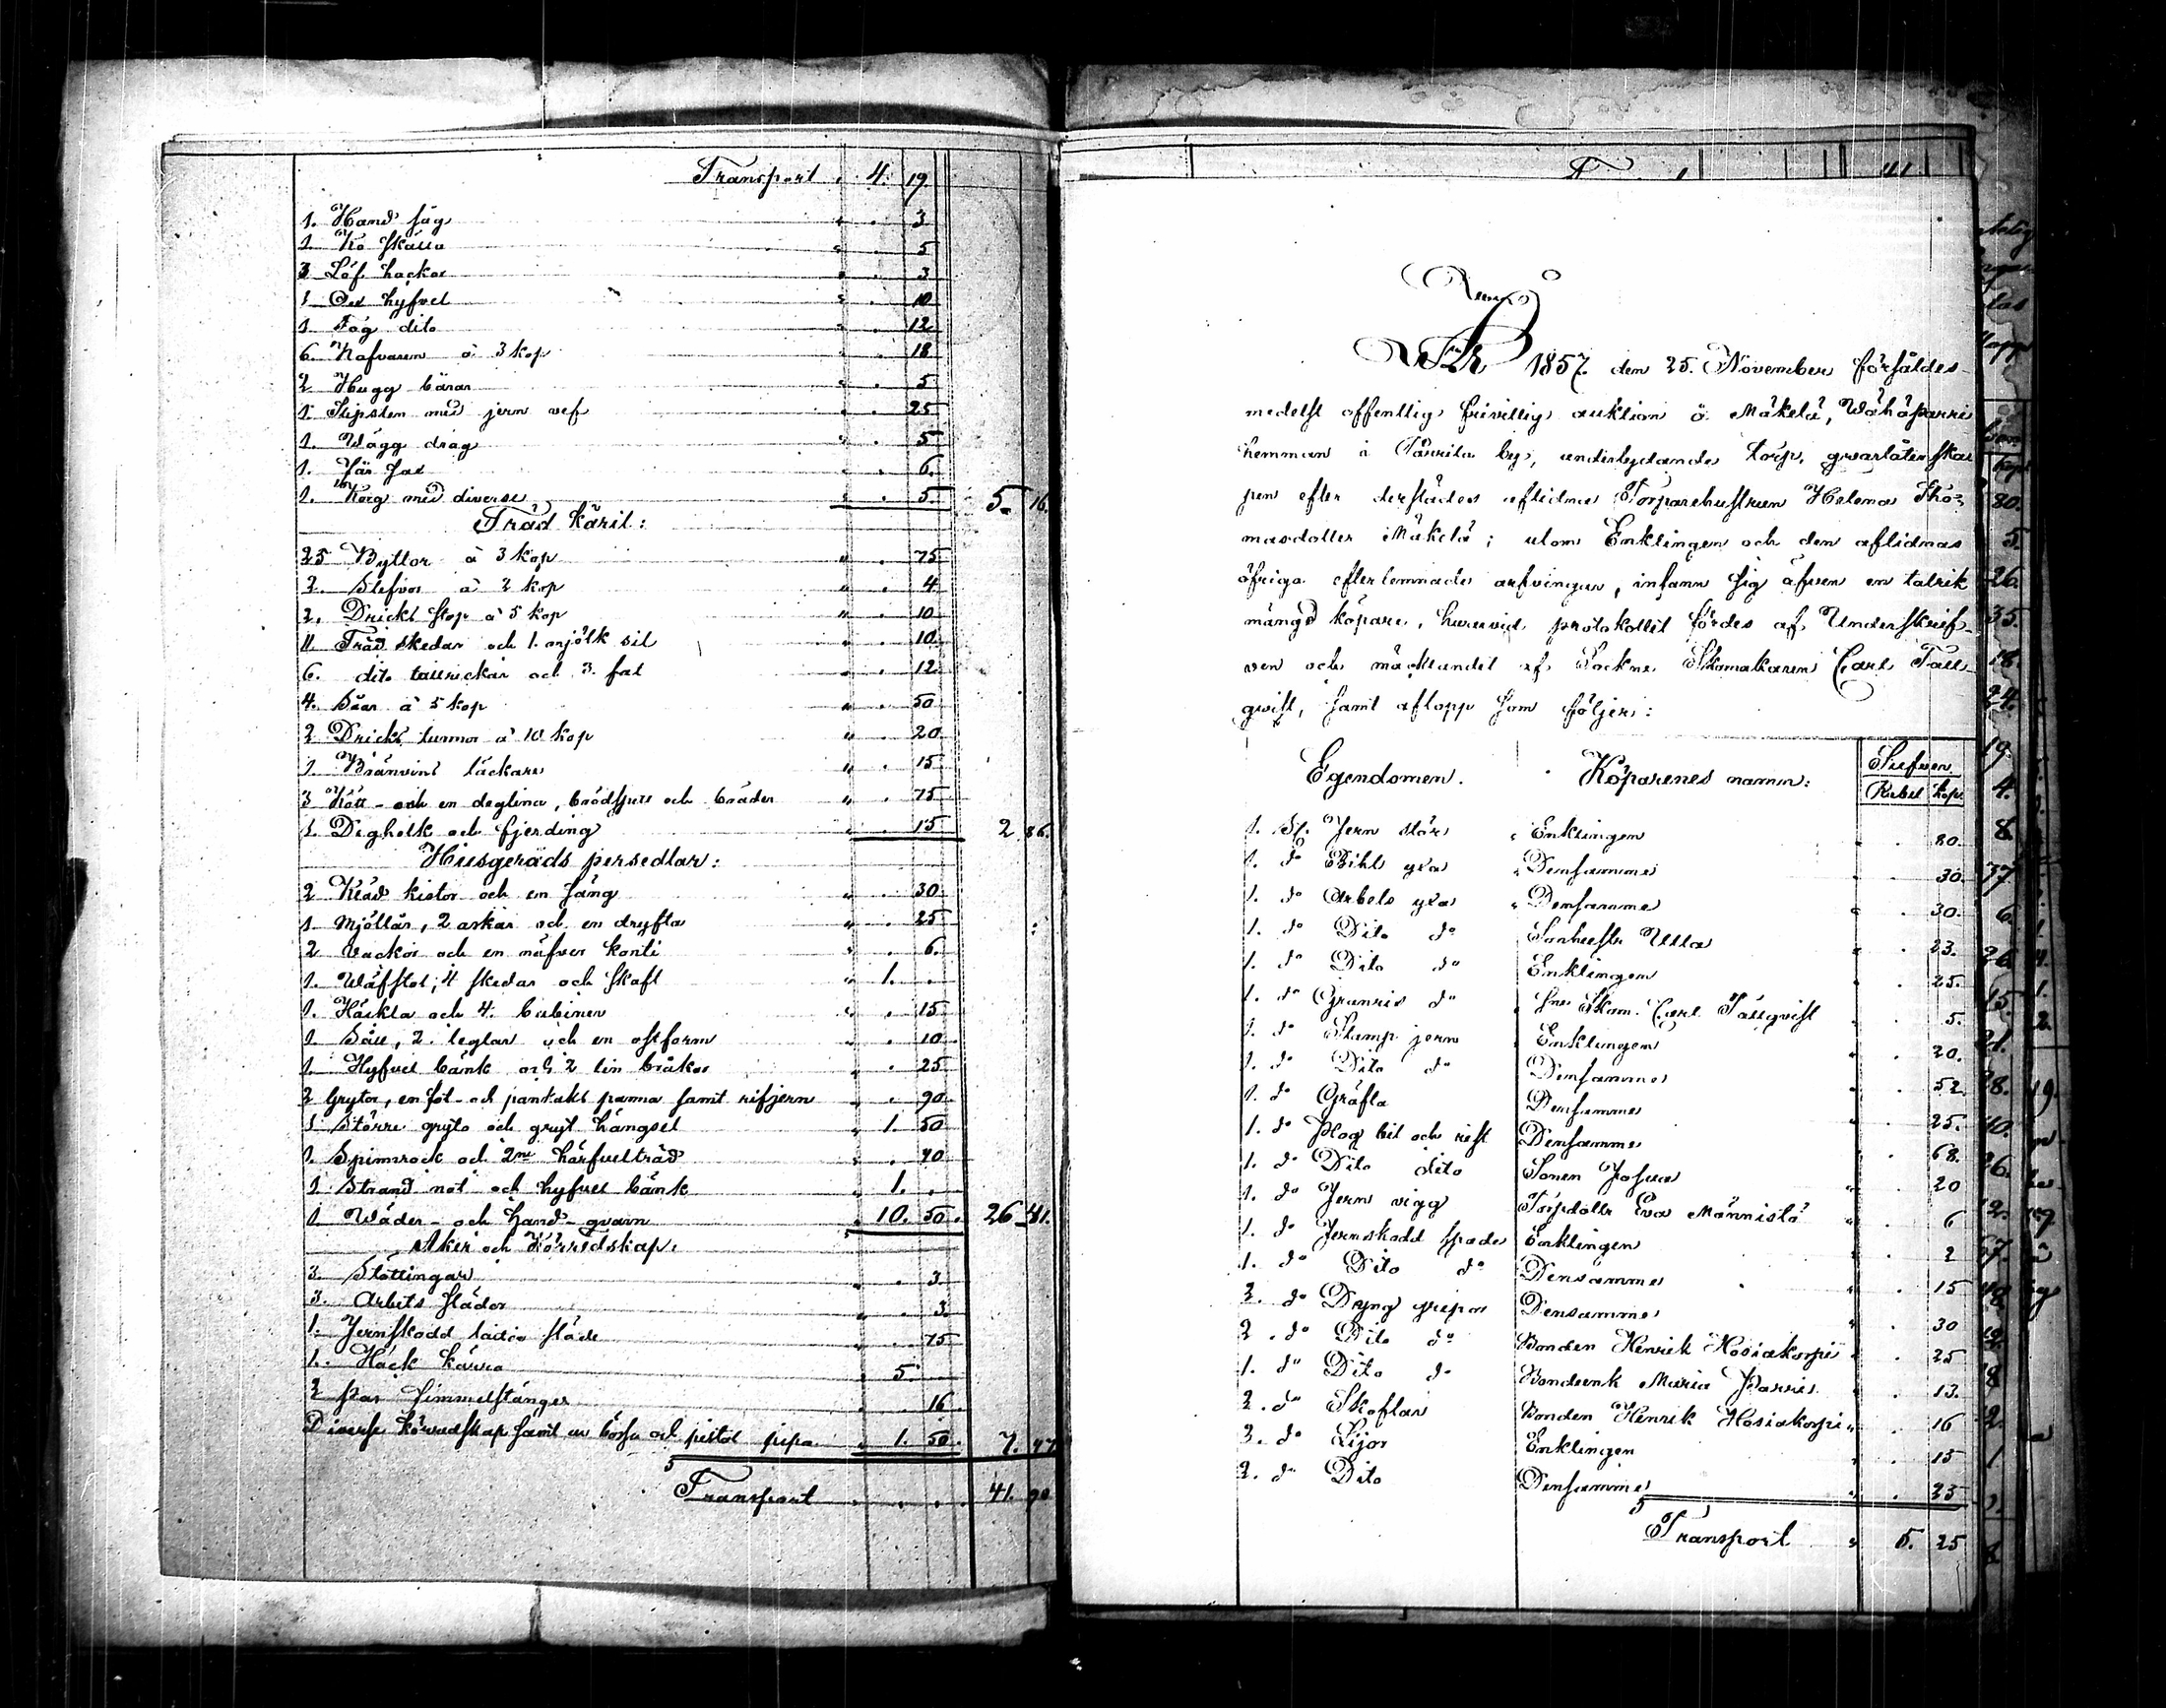 Transport 4. 19.
1. Hand såg 3
1. Ko skälla 5
3 Löf hackor 3
1 hyfvel 10
1. Fog dito 12
6. Nafvaren à 3 kop 18
2 Hugg 5
1. Slipsten med jern vef 25
1. Wägg drag 5
1. 6.
1. Korg med diverse 5. 5. 16.
Träd käril:
25 Byttor à 3 kop 75
2. Stefvor à 2 kop 4
2. Dricks stop à 5 kop 10
11. Träd skedar och 1. mjölk sil 10.
6. dito tallrickar och 3. fat 12
4. Såar à 5 kop 50
2 Dricks tunnor à 10 kop 20
1. Bränvins läckare 15
3 Kött- och en deglina, brödspett och bräder 75
1. Degholk och fjerding 15 2 86.
Husgeråds persedlar:
2 Kläd kistor och en säng 30.
1 Mjöllår, 2 askar och en dryfta 25
2 Vackor och en näfver konti 6.
1. Wäfstol, 4 skedar och skaft 1.
1. Häckla och 4. bobiner 15
1. Såll, 2. teglar och en ostform 10
1. Hyfvel bänk och 2 lin bråkor 25
2 Grytor, en fot- och pankaks panna samt rifjern 90
1 Större gryta och gryt hängsel 1. 50
1. Spinnrock och 2ne härfvelträd 40
1 Strand not och hyfvel bänk 1.
1 Wäder- och hand-qvarn 10. 50. 26 41.
Åker och Körredskap:
3. Slåttingar 3.
3. Arbets slädor 3.
1. Jernskodd släde 75
1. Häck kärra 5.
2 par Simmelstänger 16
Diverse körredskap samt en bössa och pistol pipa 1. 50. 7.
Transport 41. 90
År 1857. den 25. November försåldes
medelst offentlig frivillig auktion å Mäkelä, Wähäparri
hemman i by, underlydande torp, qvarlåtenskap
pen efter derstädes aflidna Torparehustrun Helena Tho-
masdotter Mäkelä; utom Enklingen och den aflidnas
öfriga efterlemnade arfvingar, infann sig äfven en talrik
mängd köpare, hvarvid protokollet fördes af Underskrif-
ven och mäklandet af Sockne Skomakaren Carl Täll-
qvist, samt aflopp som följer:
Egendomen. Köparenes namn: Silfver
Rubel kop
1. St. Jern stör Enklingen 80.
1. do Bihl yxa Densamme 30.
1. do Arbets yxa Densamme 30.
1. do Dito do Sonhustr Ulla 23.
1. do Dito do Enklingen 25.
1. do Granris do Sne Skom. Carl Tällqvist 5.
1. do Stamp jern Enklingen 20.
1. do Dito do Densamme 52.
1. do Gräfta Densamme 25.
1. do Plog bil och rist Densamme 68.
1. do Dito dito Sonen Josua 20
1. do Jern vigg Torpdottr Eva Männistö 6
1. do Jernskodd spade Enklingen 2
1. do Dito do Densamme 15
2. do Dyng gripar Densamme 30
2. do Dito do Bonden Henrik Hosiakorpi 25
1. do Dito do Bondeenk Maria Parri 13.
2. do Skoflar Bonden Henrik Hosiakorpi 16
3. do Lijor Enklingen 15
2. do Dito Densamme 25
Transport 5. 25